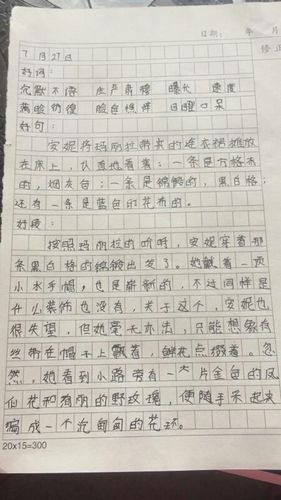 日期： 年 月
7月27日
好词：
沉默不语 庄严肃穆 曝光 速度
满脸彷徨 脸色憔悴 目瞪口呆
好句：
安妮将玛丽拉带来的连衣裙摊放
在床上，认真地看着：一条是方格布
的，烟灰色；一条是棉缎的，黑白格；
还有一条是蓝色印花布的。
好段：
按照玛丽拉的吩咐，安妮穿着那
条黑白格的棉缎出发了。她戴着一顶
小水手帽，也是崭新的，不过同样是
什么装饰也没有，关于这个，安妮也
很失望，但她毫无办法，只能想象有
丝带在帽子上飘着，鲜花点缀着。忽
然，她看到小路旁有一大片金色的凤
仙花和绚丽的野玫瑰，便随手采起来
编成一个沉甸甸的花环。
20×15=300